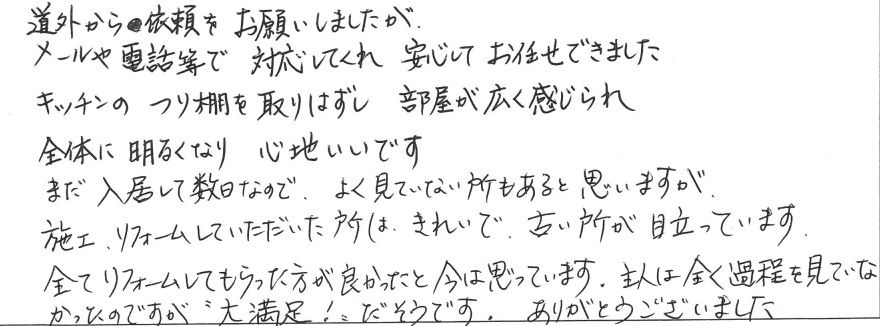 道外から依頼をお願いしましたが、
メールや電話等で 対応してくれ 安心して お任せできました
キッチンの つり棚を取りはずし 部屋が広く感じられ
全体に 明るくなり 心地いいです
まだ 入居して数日なので、よく見ていない所もあると思いますが、
施工、リフォームしていただいた所は、きれいで、古い所が目立っています。
全てリフォームしてもらった方が良かったと今は思っています。主人は全く過程を見ていな
かったのですが〝大満足！〟だそうです。ありがとうございました